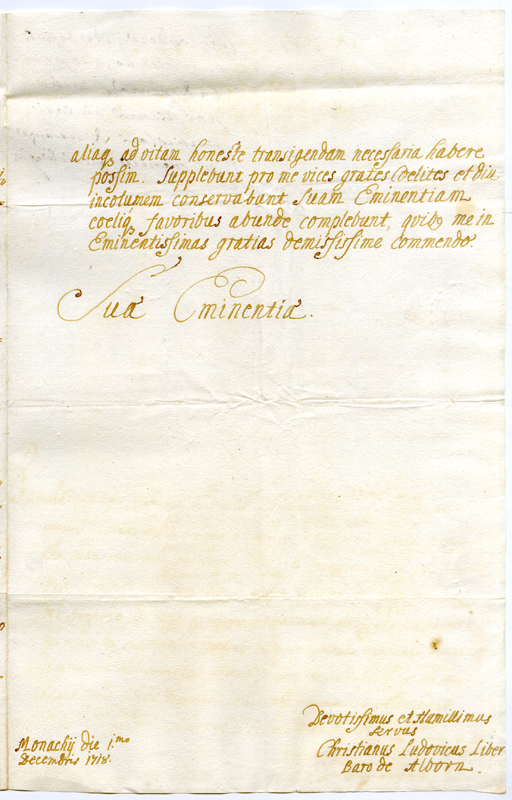 aliaq ad vitam honeste transigendam necessaria habere
possim. Supplebunt pro me vices grates Coelites et diu
incolumem conservabunt Suam Eminentiam
coeliq favoribus abunde complebunt, quib me in
Eminentissimas gratias demississime commendo
Suæ Eminentiæ.
Devotissimus et Humillimus
servus
Christianus Ludovicus Liber
Baro de Alborn.
Monachij die 1.mo
Decembris 1718.